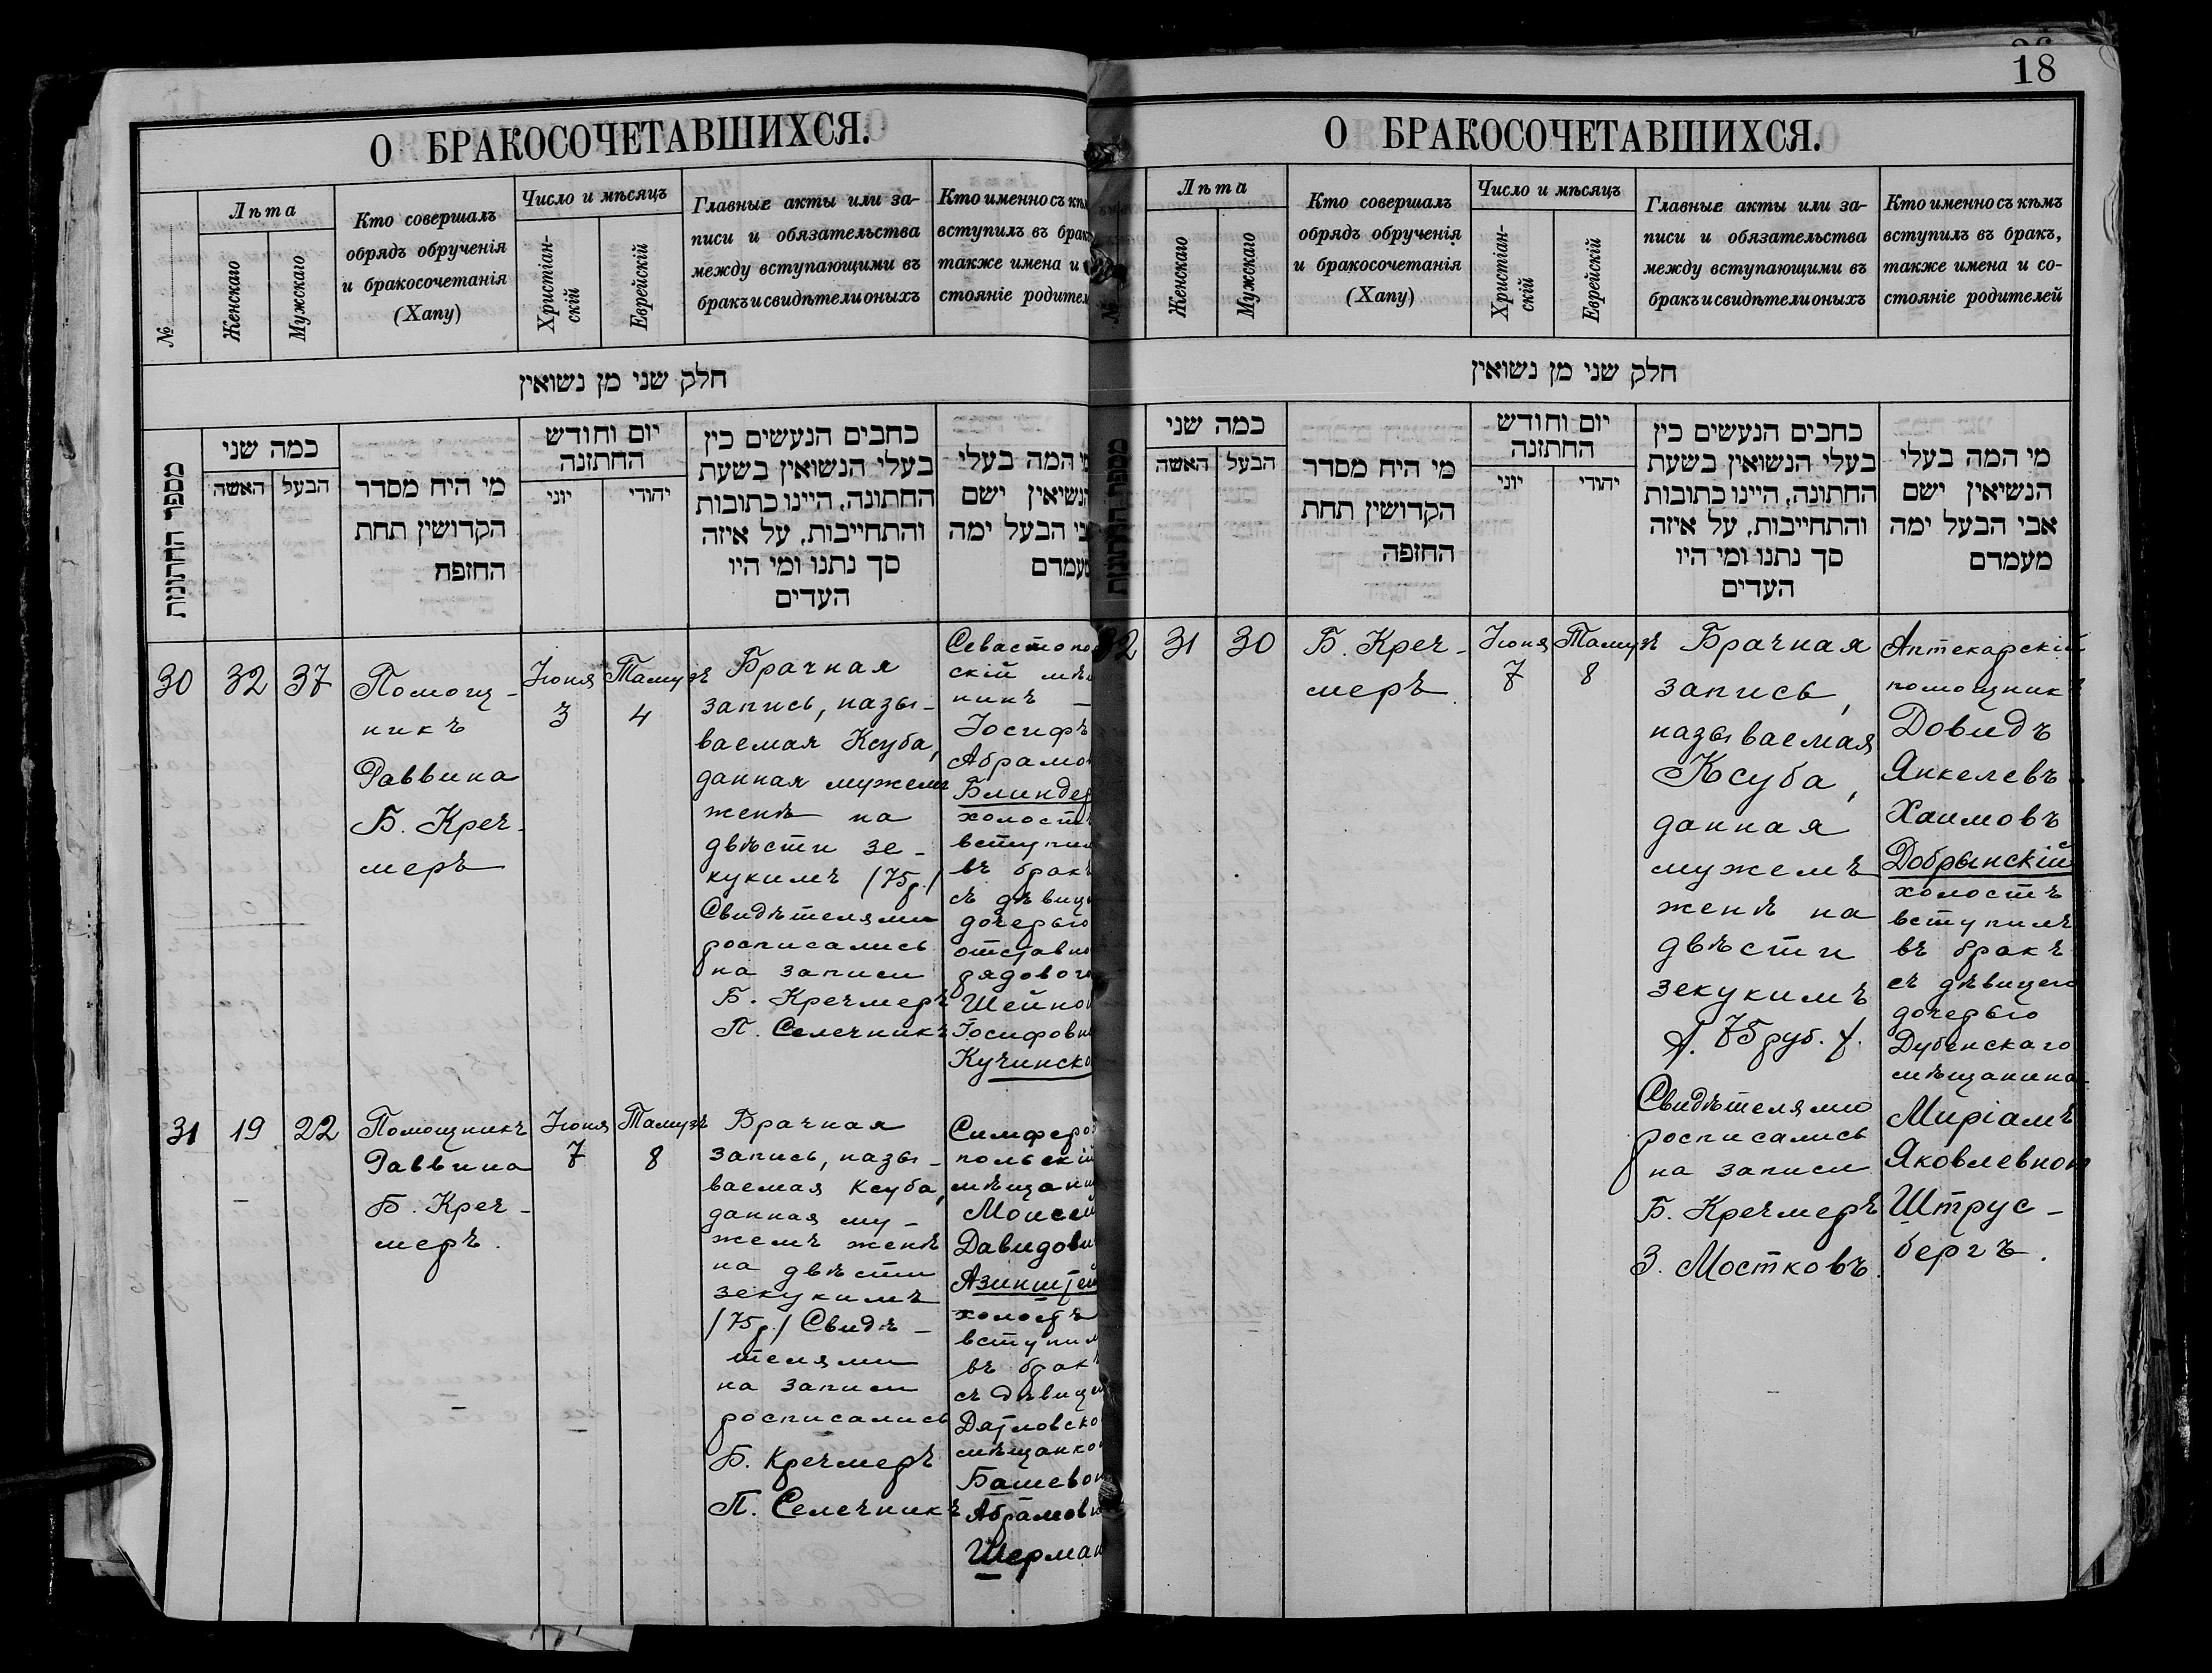 18
О БРАКОСОЧЕТАВШИХСЯ.
№
Лѣта
Женскаго
Мужскаго
Кто совершалъ
обрядъ обрученія
и бракосочетанія
(Хапу)
Число и мѣсяцъ
Христіан-
скій
Еврейскій
Главные акты или за-
писи и обязательства
между вступающими въ
бракъ и свидѣтели оныхъ
Кто именно съ кѣм
вступилъ въ брак
также имена и
стояніе родител
חלק שני מן נשואין
מספר החתונות
כמה שני
האשה
הבעל
מי היח מסדר
הקדושין תחת
החופה
יום וחודש
החתונה
יוני
יהודי
כתבים הנעשים בין
בעלי הנשואין בשעת
החתונה, היינו כתובות
והתחייבות, על איזה
סך נתנו ומי היו
העדים
מי המה בעלי
הנשיאין ישם
בי הבעל ימה
מעמדם
30
32
37
Помощ-
никъ
Раввина
Б. Креч-
меръ
Іюня
3
Тамузъ
4
Брачная
запись, назы-
ваемая Ксуба,
данная мужемъ
женѣ на
двѣсти зе-
кукимъ /75р./
Свидѣтелями
росписались
на записи
Б. Кречмеръ
П. Селечникъ
Севастопол
скій мѣщ
нинъ
Іосифъ
Абрамов
Блиндер
холостъ
вступил
въ бракъ
съ дѣвице
дочерью
отставно
рядового
Шейной
Іосифовн
Кучинско
31
19
22
Помощникъ
Раввина
Б. Креч-
меръ.
Іюня
7
Тамузъ
8
Брачная
запись, назы-
ваемая Ксуба,
данная му-
жемъ женѣ
на двѣсти
зекукимъ
/75р./ Свидѣ-
телями
на записи
росписались
Б. Кречмеръ
П. Селечникъ
Симферо
польскій
мѣщанин
Моисей
Давидови
Азинштей
холостъ
вступил
въ бракъ
съ дѣвицей
Дятловско
мѣщанко
Башевой
Абрамовн
Шерман
О БРАКОСОЧЕТАВШИХСЯ.
№
Лѣта
Женскаго
Мужскаго
Кто совершалъ
обрядъ обрученія
и бракосочетанія
(Хапу)
Число и мѣсяцъ
Христіан-
скій
Еврейскій
Главные акты или за-
писи и обязательства
между вступающими въ
бракъ и свидѣтели оныхъ
Кто именно съ кѣмъ
вступилъ въ бракъ,
также имена и со-
стояніе родителей
חלק שני מן נשואין
מספר החתונות
כמה שני
האשה
הבעל
מי היח מסדר
הקדושין תחת
החופה
יום וחודש
החתונה
יוני
יהודי
כתבים הנעשים בין
בעלי הנשואין בשעת
החתונה, היינו כתובות
והתחייבות, על איזה
סך נתנו ומי היו
העדים
מי המה בעלי
הנשיאין ישם
אבי הבעל ימה
מעמדם
32
31
30
Б. Креч-
меръ
Іюня
7
Тамузъ
8
Брачная
запись,
называемая
Ксуба,
данная
мужемъ
женѣ на
двѣсти
зекукимъ
/. 75 руб. /.
Свидѣтелями
росписались
на записи
Б. Кречмеръ
З. Мостковъ.
Аптекарскій
помощникъ
Довидъ
Янкелевъ-
Хаимовъ
Добрынскій
холостъ
вступилъ
въ бракъ
съ дѣвицею
дочерью
Дубенскаго
мѣщанина
Миріамъ
Яковлевной
Штрус-
бергъ.